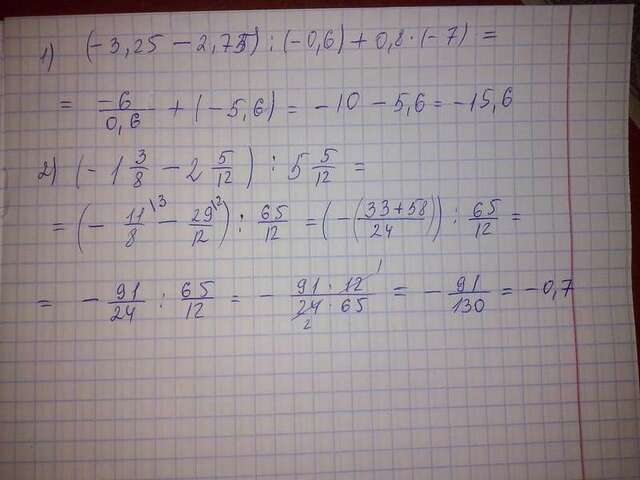 1) (-3,25 - 2,75) : (-0,6) + 0,8 · (-7) =
= -6/0,6 + (-5,6) = -10 - 5,6 = -15,6
2) (-1 3/8 - 2 5/12) : 5 5/12 =
= (- 11/8 \3 - 29/12 \2) : 65/12 = (-(33+58/24)) : 65/12 =
= - 91/24 : 65/12 = - 91 · 12 1/24 2 · 65 = - 91/130 = -0,7